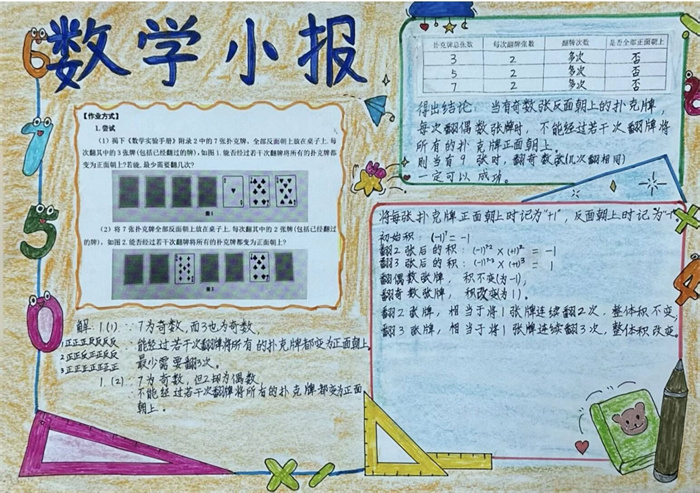 数学小报
【作业方式】
1.尝试
(1) 揭下《数学实验手册》附录2中的7张扑克牌,全部反面朝上放在桌子上.每
次翻其中的3张牌(包括已经翻过的牌),如图1.能否经过若干次翻牌将所有的扑克牌都
变为正面朝上?若能,最少需要翻几次?
图1
(2) 将7张扑克牌全部反面朝上放在桌子上.每次翻其中的2张牌(包括已经翻过
的牌),如图2.能否经过若干次翻牌将所有的扑克牌都变为正面朝上?
图2
解:1(1) ∵7为奇数,而3也为奇数,
能经过若干次翻牌将所有的扑克牌都变为正面朝上.
1正正正反反反反
最少需要翻3次。
3正正正正正正正
1.(2)∵7为奇数,但2却为偶数
不能经过若干次翻牌将所有的扑克牌都变为正面
朝上。
扑克牌总张数 每次翻牌张数 翻牌次数 是否全部正面朝上
3 2 多次 否
5 2 多次 否
7 2 多次 否
得出结论:当有奇数张反面朝上的扑克牌,
每次翻偶数张牌时,不能经过若干次翻牌将
所有的扑克牌正面朝上.
则当有9张时,翻奇数张(几次翻相同)
一定可以成功。
将每张扑克牌正面朝上时记为"+1",反面朝上时记为"-1"
初始积:(-1)⁷=-1
翻2张后的积:(-1)⁷⁻²×(+1)²=-1
翻3张后的积:(-1)⁷⁻³×(+1)³=1
翻偶数张牌,积不变(为-1),
翻奇数张牌,积改变(为1)。
翻2张牌,相当于将1张牌连续翻2次,整体积不变,
翻3张牌,相当于将1张牌连续翻3次,整体积改变.
6
7
5
0
7
2
4